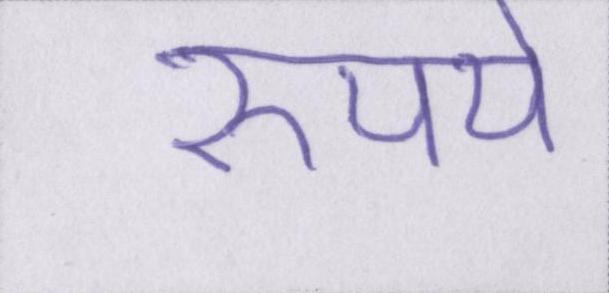 रुपये